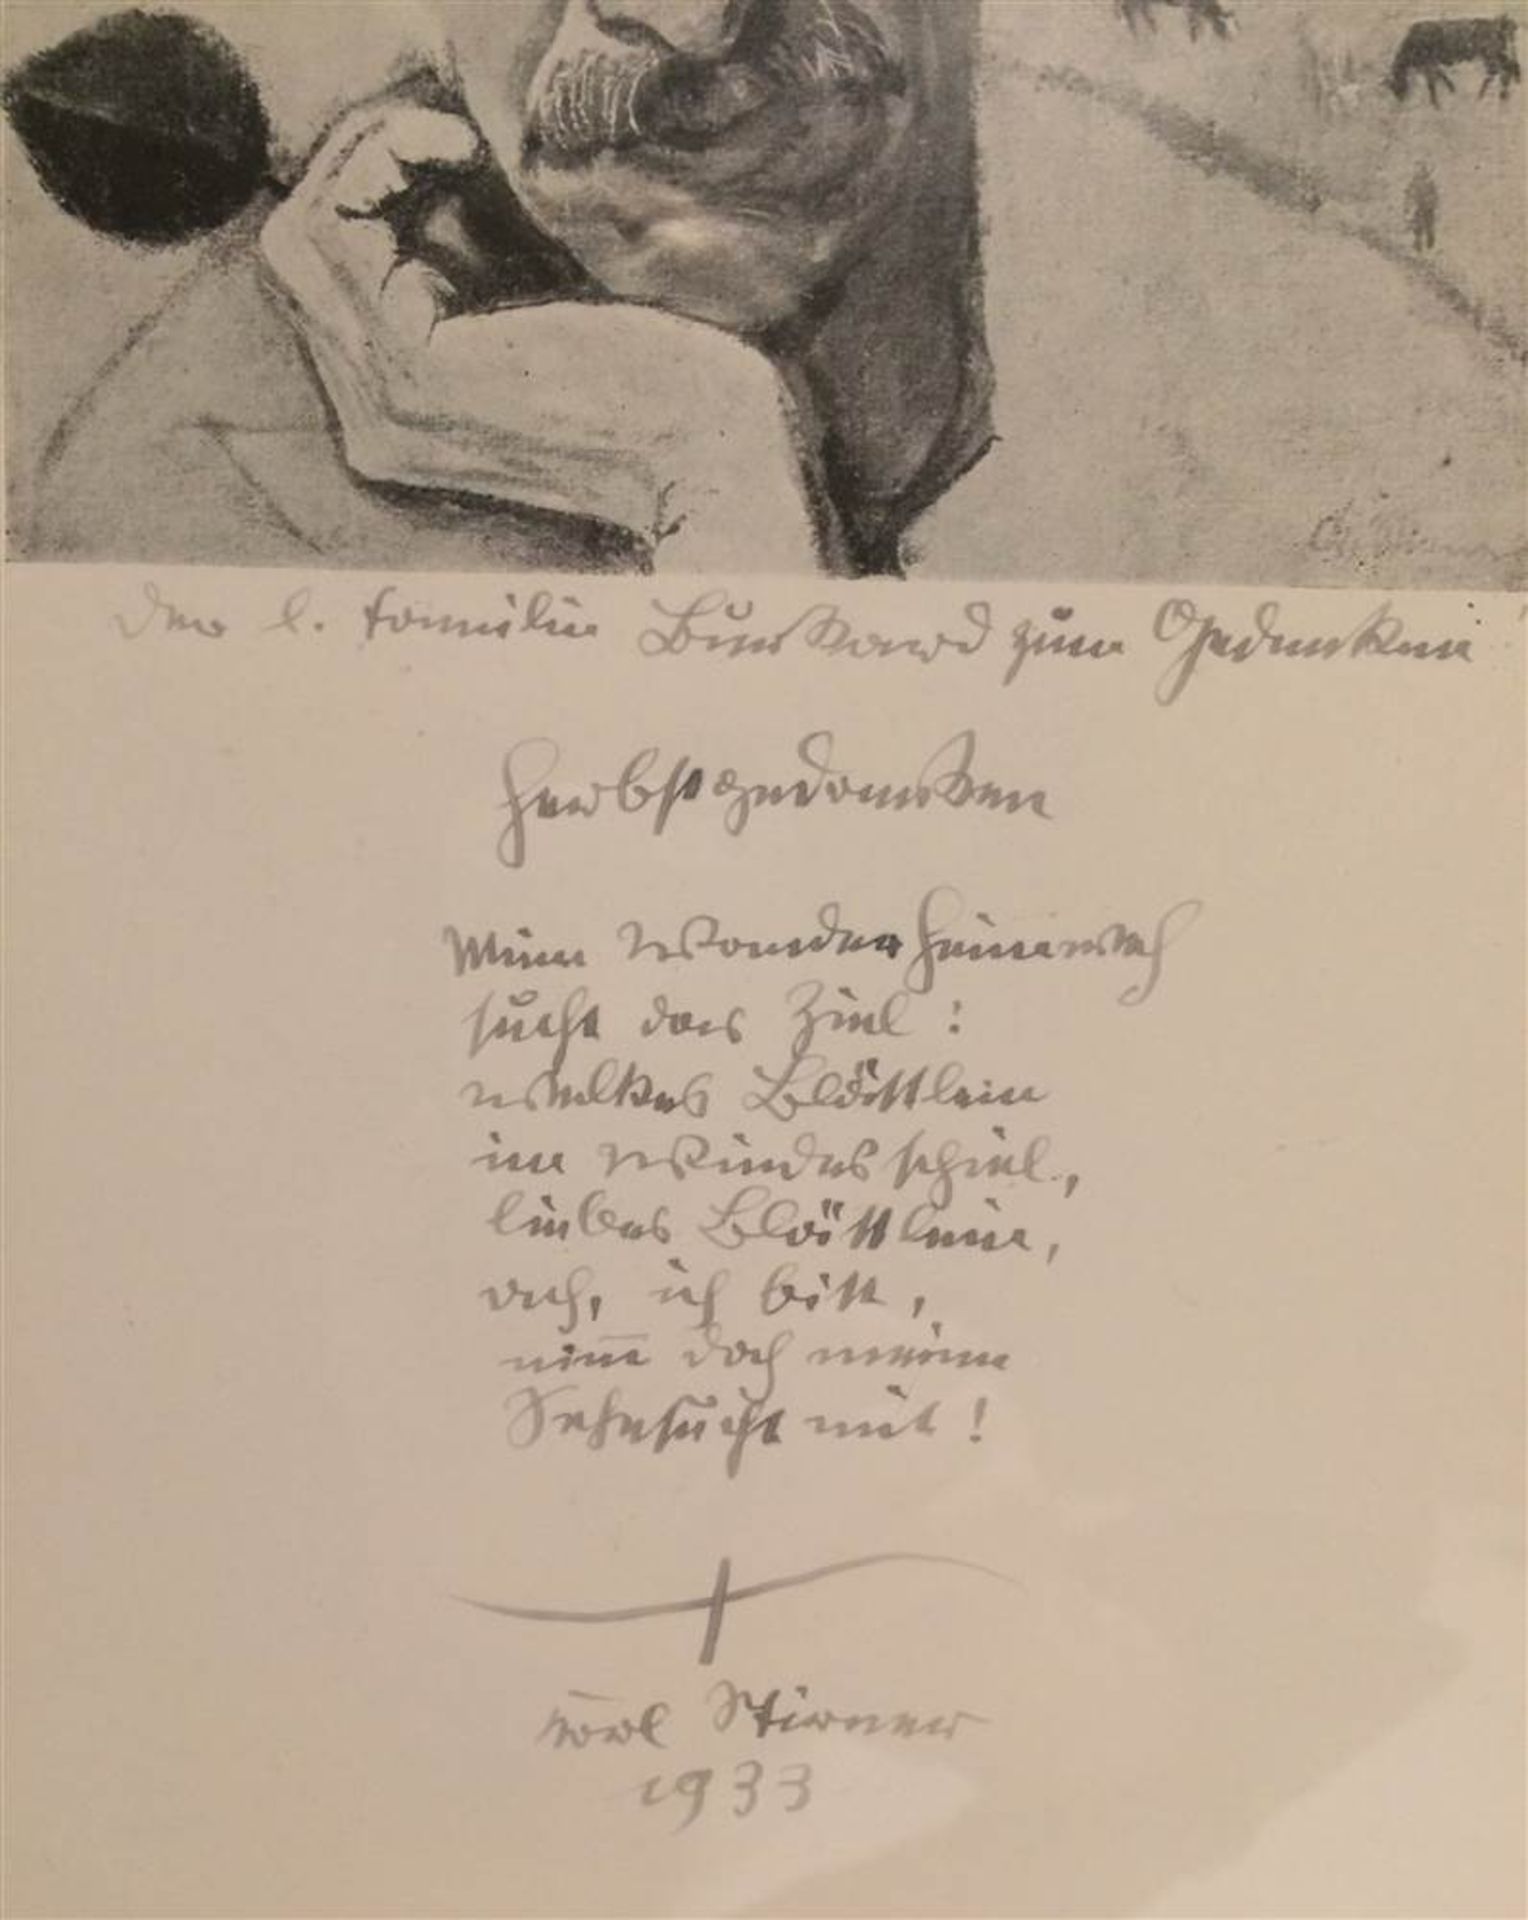 Der l. Familie Burkard zum Gedenken!
Herbstgedanken
Mein Wanderheimweh
sucht das Ziel:
welkes Blättlein
im Windesspiel,
liebes Blättlein,
ach, ich bitt,
nim̅ doch meine
Sehnsucht mit!
Karl Stirner
1933